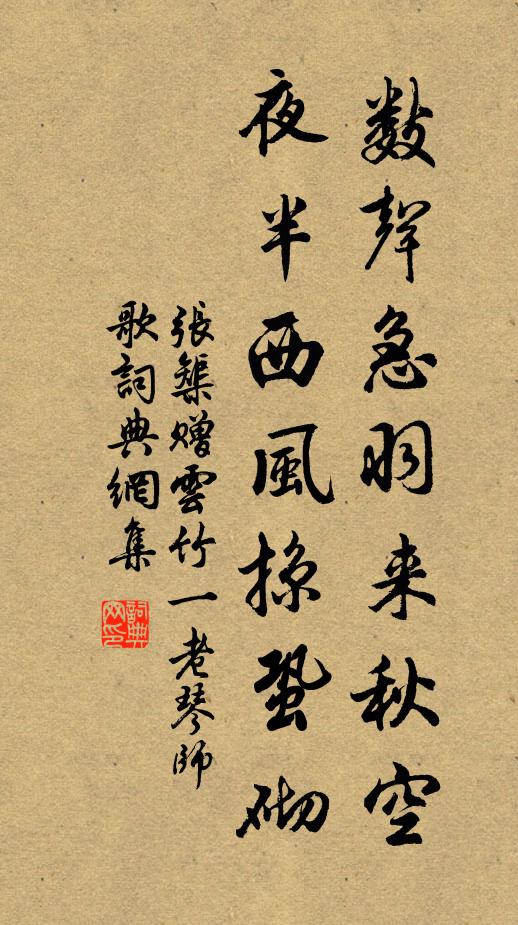 数聲急羽来秋空
夜半西風掠蛩砌
張榘贈雲竹一老琴師
歌詞典網集
詞典网印